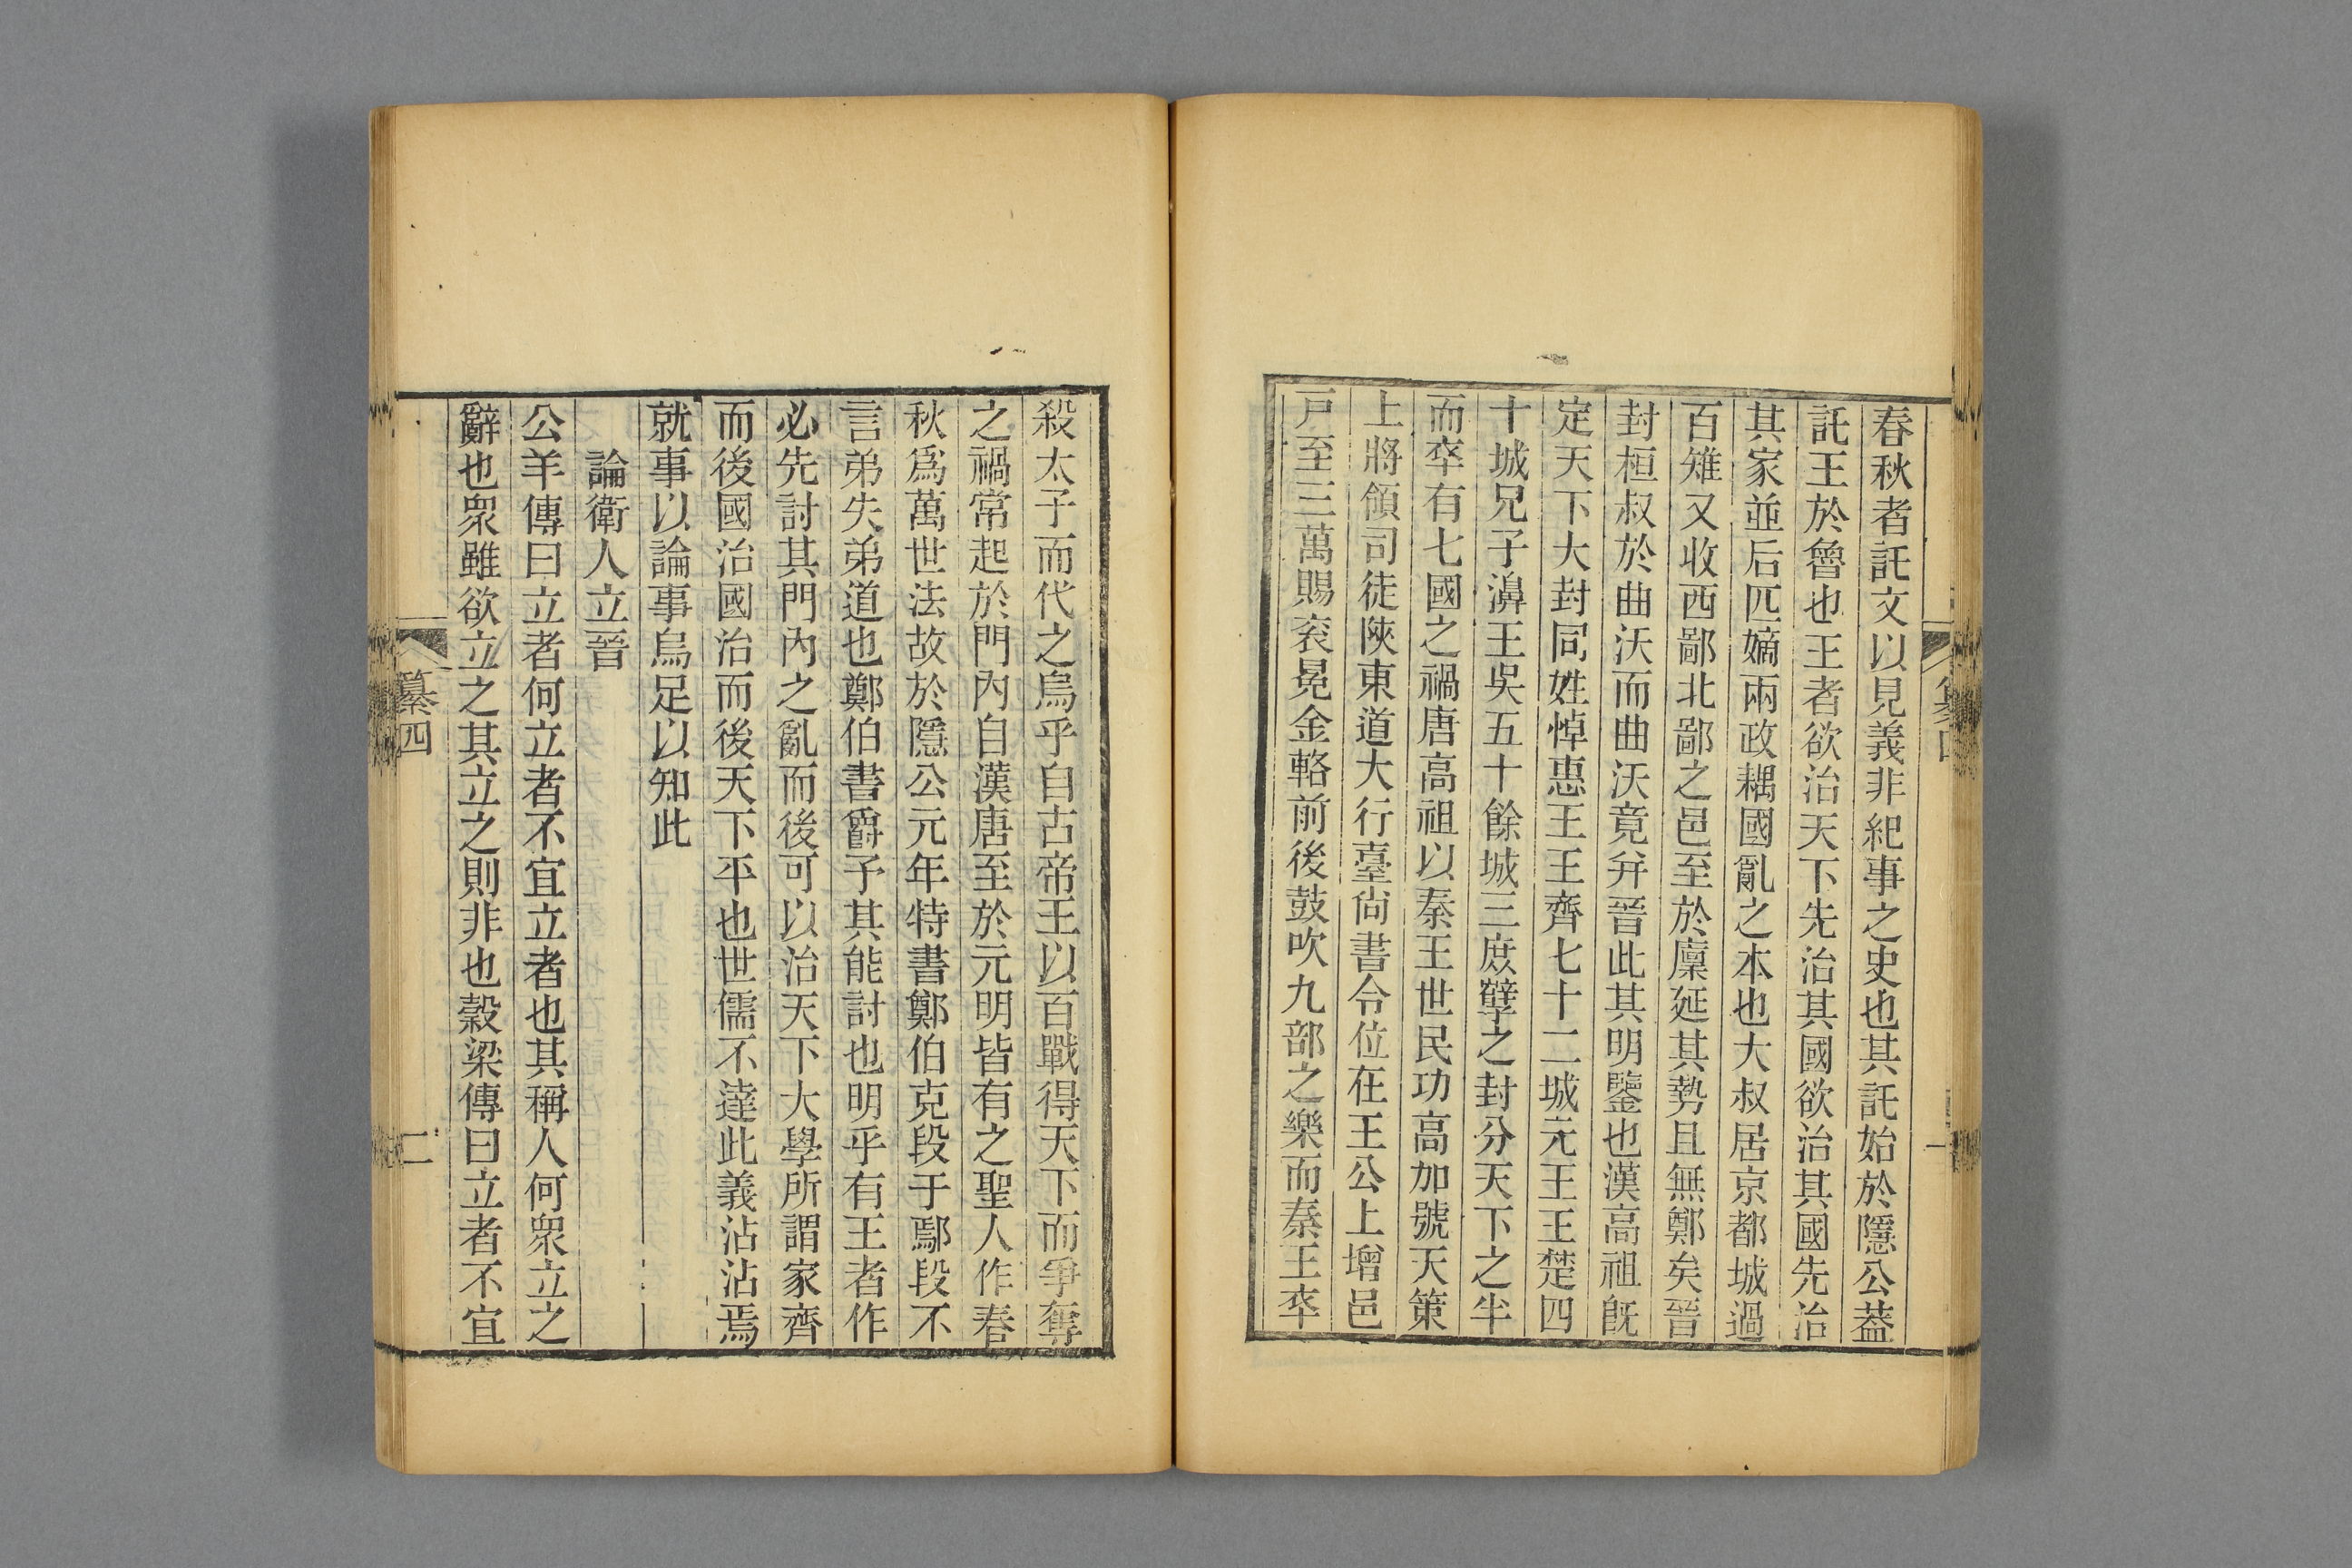 春秋者託文以見義非紀事之史也其託始於隱公葢
託王於魯也王者欲治天下先治其國欲治其國先治
其家並后匹嫡兩政耦國亂之本也大叔居京都城過
百雉又收西鄙北鄙之邑至於廩延其勢且無鄭矣晉
封桓叔於曲沃而曲沃竟并晉此其明鑒也漢高祖旣
定天下大封同姓悼惠王王齊七十二城元王王楚四
十城兄子濞王吳五十餘城三庶孽之封分天下之半
而卒有七國之禍唐高祖以秦王世民功高加號天策
上將領司徒陝東道大行臺尙書令位在王公上增邑
戸至三萬賜衮冕金輅前後鼓吹九部之樂而秦王卒
殺太子而代之烏乎自古帝王以百戰得天下而爭奪
之禍常起於門內自漢唐至於元明皆有之聖人作春
秋爲萬世法故於隱公元年特書鄭伯克段于鄢段不
言弟失弟道也鄭伯書爵予其能討也明乎有王者作
必先討其門內之亂而後可以治天下大學所謂家齊
而後國治國治而後天下平也世儒不達此義沾沾焉
就事以論事烏足以知此
論衛人立晉
公羊傳曰立者何立者不宜立者也其稱人何衆立之
辭也衆雖欲立之其立之則非也穀梁傳曰立者不宜
纂四
二